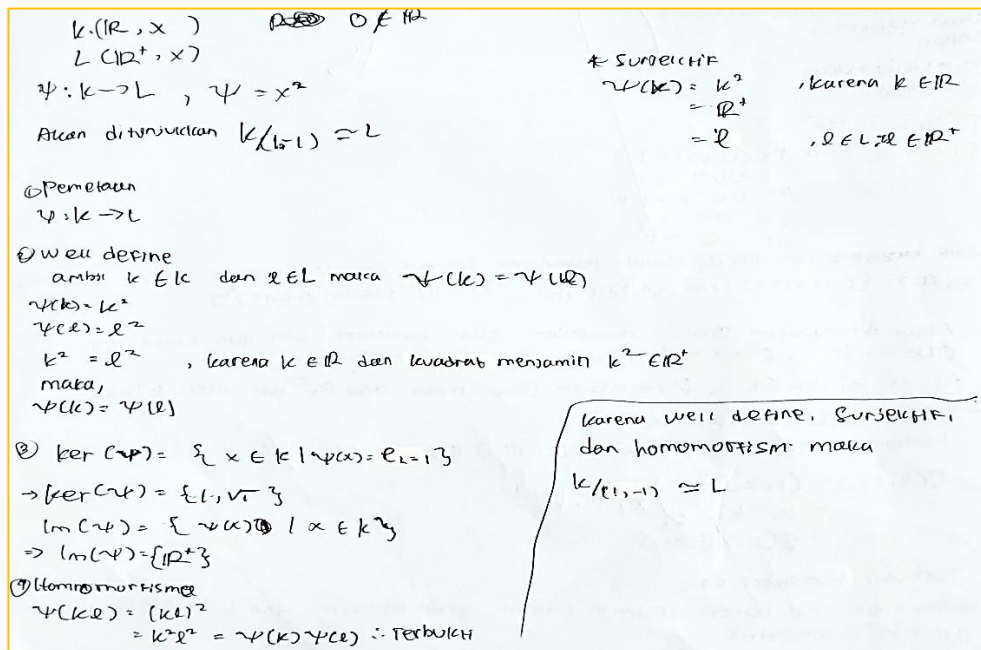 K.(ℝ, x ) 0 ∉ ℝ
L (ℝ⁺, x)
Ψ : K → L , Ψ = x²
Akan ditunjukkan K/(1,-1) ≃ L
① Pemetaan
Ψ : K → L
② Well define
ambil k ∈ K dan ℓ ∈ L maka Ψ(k) = Ψ(ℓ)
Ψ(k) = k²
Ψ(ℓ) = ℓ²
k² = ℓ² , karena k ∈ ℝ dan kuadrat menjamin k² ∈ ℝ⁺
maka,
Ψ(k) = Ψ(ℓ)
③ ker (Ψ) = { x ∈ K | Ψ(x) = e_L = 1 }
→ ker(Ψ) = {1, √1 }
Im (Ψ) = { Ψ(x) | x ∈ K }
⇒ Im(Ψ) = {ℝ⁺}
④ Homomorfisma
Ψ(kℓ) = (kℓ)²
= k²ℓ² = Ψ(k)Ψ(ℓ) ∴ Terbukti
* Surjektif
Ψ(k) = k² , karena k ∈ ℝ
= ℝ⁺
= ℓ , ℓ ∈ L, ℓ ∈ ℝ⁺
karena well define, Surjektif,
dan homomorfism maka
K/{1,-1} ≃ L